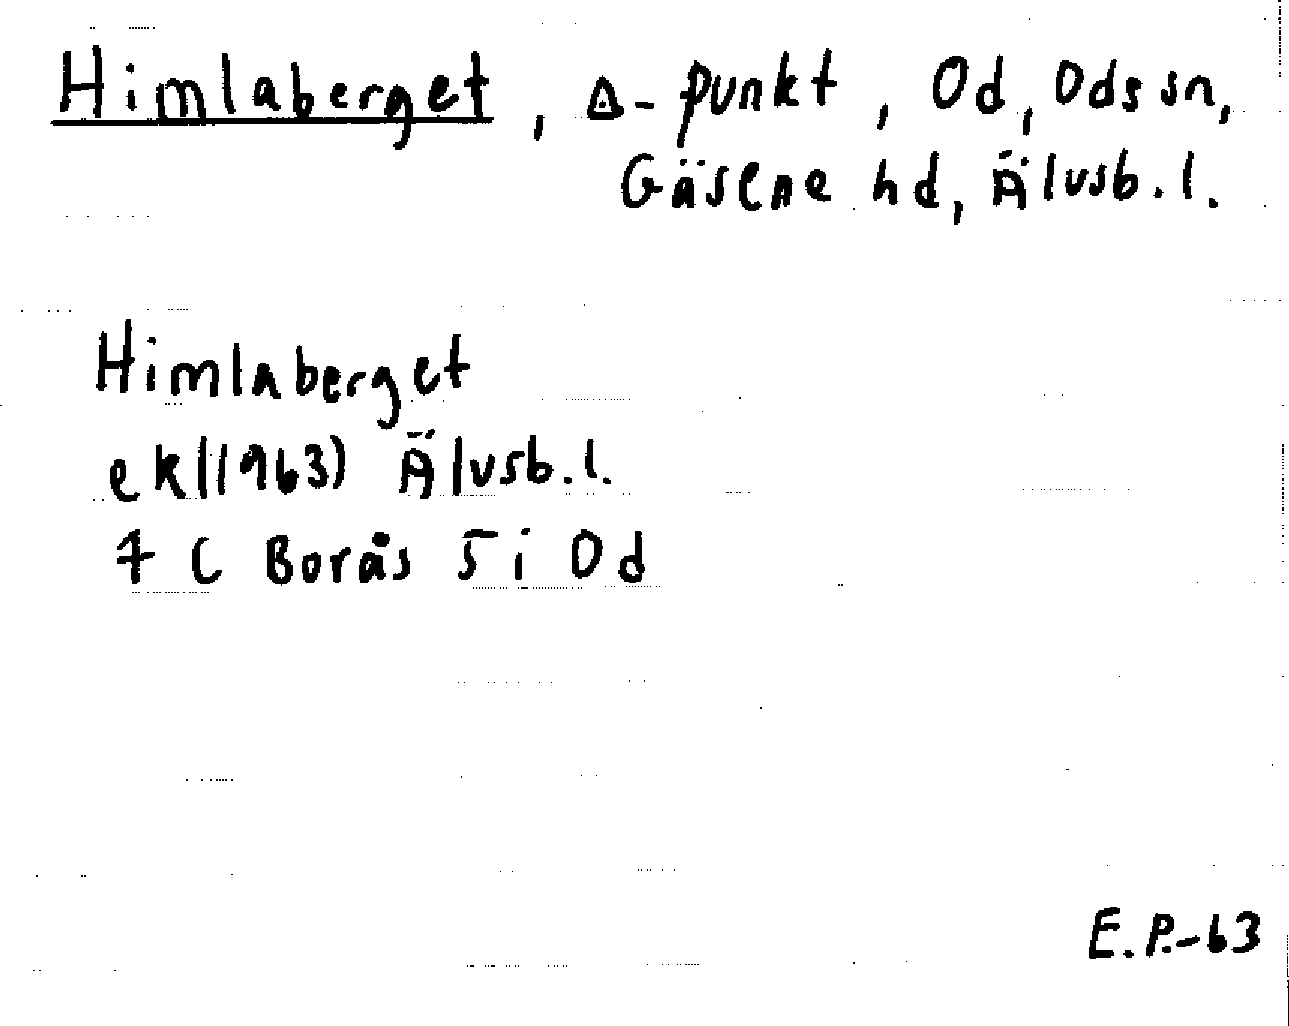 Himlaberget, △-punkt, Od, Ods sn,
Gäsene hd, Älvsb. l.
Himlaberget
ek(1963) Älvsb. l.
7 C Borås 5 i Od
E.P.-63